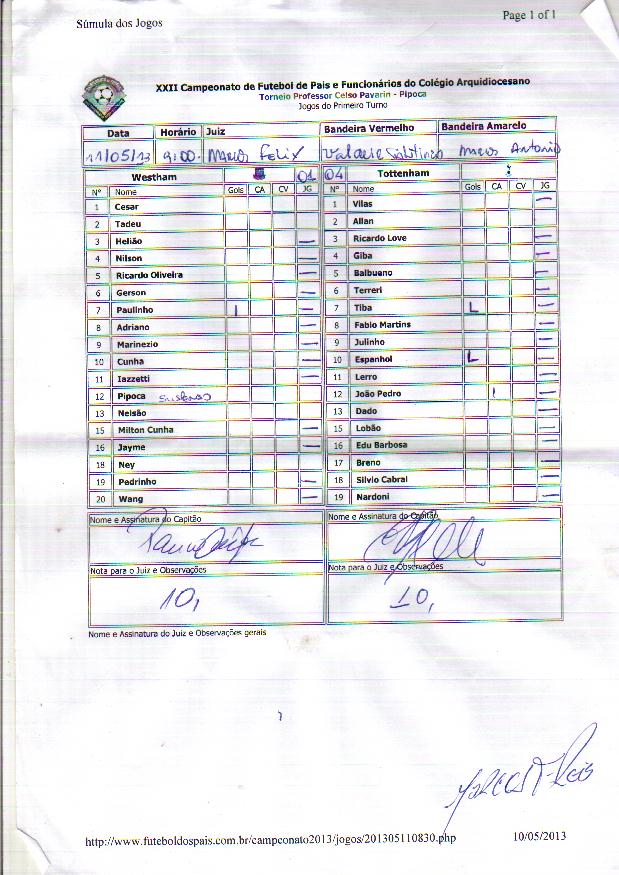 Súmula dos Jogos
Page 1 of 1
XXII Campeonato de Futebol de Pais e Funcionários do Colégio Arquidiocesano
Torneio Professor Celso Pavarin - Pipoca
Jogos do Primeiro Turno
Data Horário Juiz Bandeira Vermelho Bandeira Amarelo
11/05/13 9:00 Felix Antonio
Westham 01 04 Tottenham
Nº Nome Gols CA CV JG Nº Nome Gols CA CV JG
1 Cesar 1 Vilas —
2 Tadeu 2 Allan
3 Helião — 3 Ricardo Love —
4 Nilson — 4 Giba —
5 Ricardo Oliveira — 5 Balbueno —
6 Gerson — 6 Terreri —
7 Paulinho | — 7 Tiba L —
8 Adriano — 8 Fabio Martins —
9 Marinezio — 9 Julinho —
10 Cunha — 10 Espanhol L —
11 Iazzetti — 11 Lerro —
12 Pipoca 12 João Pedro | —
13 Nelsão 13 Dado —
15 Milton Cunha — 15 Lobão —
16 Jayme — 16 Edu Barbosa —
18 Ney 17 Breno —
19 Pedrinho — 18 Silvio Cabral —
20 Wang — 19 Nardoni —
Nome e Assinatura do Capitão Nome e Assinatura do Capitão
Nota para o Juiz e Observações Nota para o Juiz e Observações
10, 10,
Nome e Assinatura do Juiz e Observações gerais
http://www.futeboldospais.com.br/campconato2013/jogos/201305110830.php 10/05/2013